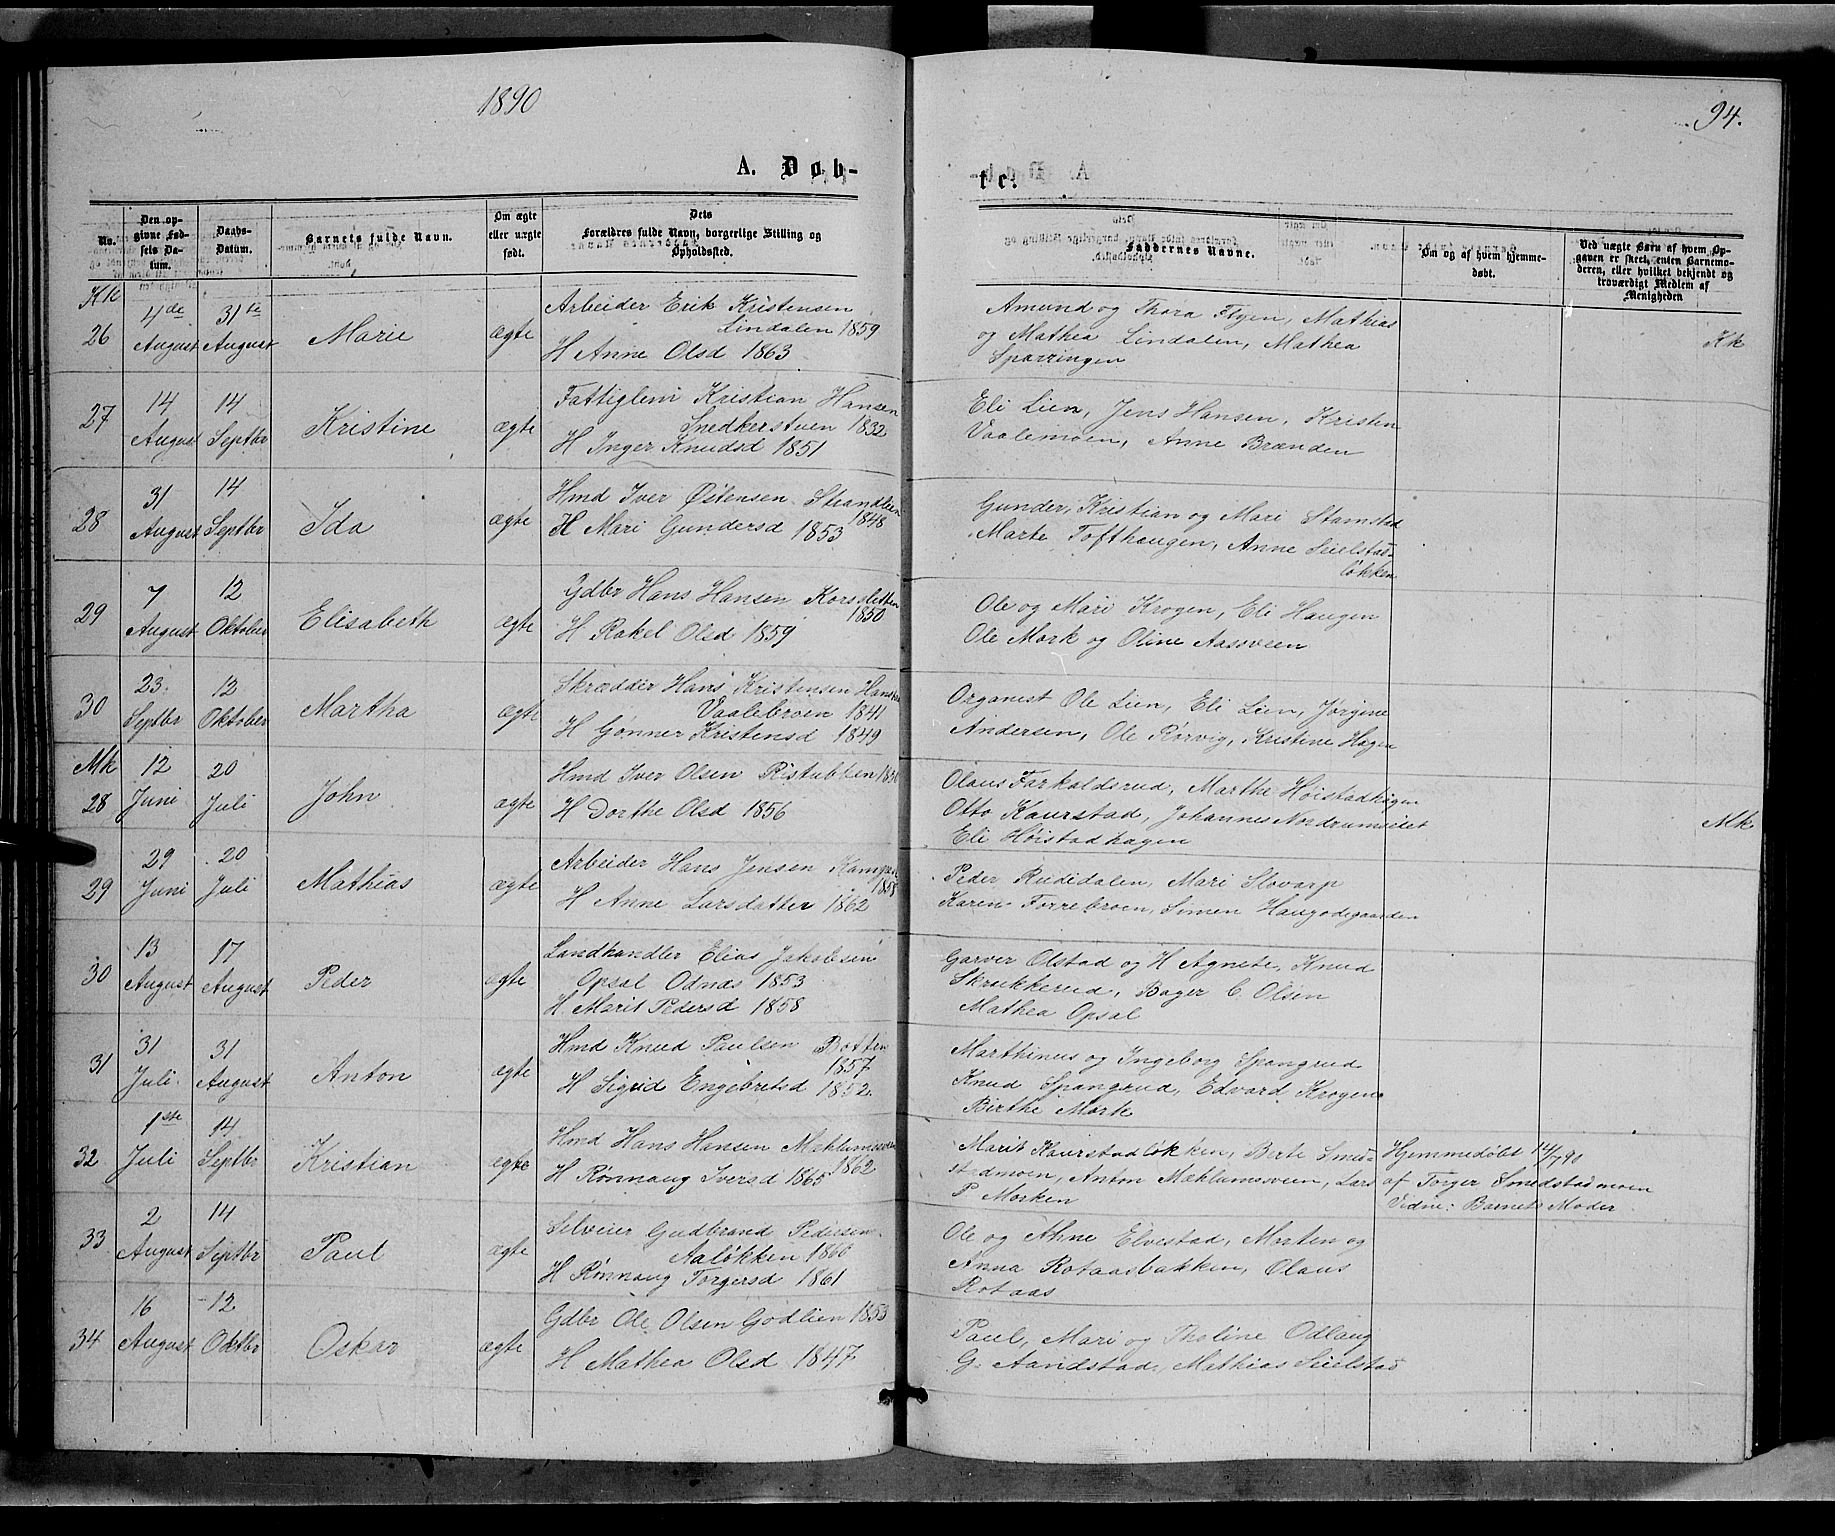 1890
94.
A. Døb-
te.
No.
Den op-
givne Fød-
sels Da-
tum.
Daabs-
Datum.
Barnets fulde Navn.
Om ægte
eller uægte
født.
Dets
Forældres fulde Navn, borgerlige Stilling og
Opholdssted.
Faddernes Navne.
Om og af hvem hjemme-
døbt.
Ved uægte Børn af hvem Op-
gaven er skeet, enten Barnemo-
deren, eller hvilket bekjendt og
troværdigt Medlem af
Menigheden
Kk
26
4de
August
31te
August
Marie
ægte
Arbeider Erik Kristensen
Lindalen 1859
H Anne Olsd 1863
Amund og Thora Flyen, Mathias
og Mathea Lindalen, Mathea
Sparringen
Kk
27
14
August
14
Septbr
Kristine
ægte
Fattiglem Kristian Hansen
Snedkerstuen 1832
H Inger Knudsd 1851
Eli Lien, Jens Hansen, Kristen
Vaalemoen, Anne Brænden
28
31
August
14
Septbr
Ida
ægte
Hmd Iver Østensen Strandlien
1848
H Mari Gundersd 1853
Gunder, Kristian og Mari Stamstad
Marte Tofthaugen, Anne Seielstad-
løkken
29
7
August
12
Oktober
Elisabeth
ægte
Gdbr Hans Hansen Korsletten
1850
H Rakel Olsd 1859
Ole og Mari Krogen, Eli Haugen
Ole Mork og Oline Aassveen
30
23
Septbr
12
Oktober
Martha
ægte
Skrædder Hans Kristensen
Vaalebroen 1841
H Gønner Kristensd 1849
Organist Ole Lien, Eli Lien, Jørgine
Andersen, Ole Rørvig, Kristine Hagen
Mk
28
12
Juni
20
Juli
John
ægte
Hmd Iver Olsen Ristubben
H Dorthe Olsd 1856
Olaus Farkaldsrud, Marthe Høistadhagen
Otto Kaurstad, Johannes Nordrumseiet
Eli Høistadhagen
Mk
29
29
Juni
20
Juli
Mathias
ægte
Arbeider Hans Jensen
1858
H Anne Larsdatter 1862
Peder Rudidalen, Mari Slovarp
Karen Forrebroen, Simen Haugodegaarden
30
13
August
17
August
Peder
ægte
Landhandler Elias Jakobsen
Opsal Odnæs 1853
H Marit Pedersd 1858
Garver Olstad og H Agnete, Knud
Skrukkerud, Bager C. Olsen
Mathea Opsal
31
31
Juli
31
August
Anton
ægte
Hmd Knud Paulsen Botten
1857
H Sigrid Engebretsd 1852
Marthinus og Ingeborg Spangrud
Knud Spangrud, Edvard Krogen
Birthe Mork
32
1ste
Juli
14
Septbr
Kristian
ægte
Hmd Hans Hansen Mæhlumsveen
1862
H Rønnaug Iversd 1865
Marit Kaurstadløkken, Berte Smed-
stadmoen, Anton Mæhlumsveen, Lars
P Morken
Hjemmedøbt 14/7 90
af Torger Smedstadmoen
Vidne: Barnets Moder
33
2
August
14
Septbr
Paul
ægte
Selveier Gudbrand Pedersen
Aaløkken 1860
H Rønnaug Torgersd 1861
Ole og Anne Elvestad, Morten og
Anna Rotaasbakken, Olaus
Rotaas
34
16
August
12
Oktbr
Oskar
ægte
Gdbr Ole Olsen Godlien 1853
H Mathea Olsd 1847
Paul, Mari og Tholine Odlaug
G. Aandstad, Mathias Seielstad